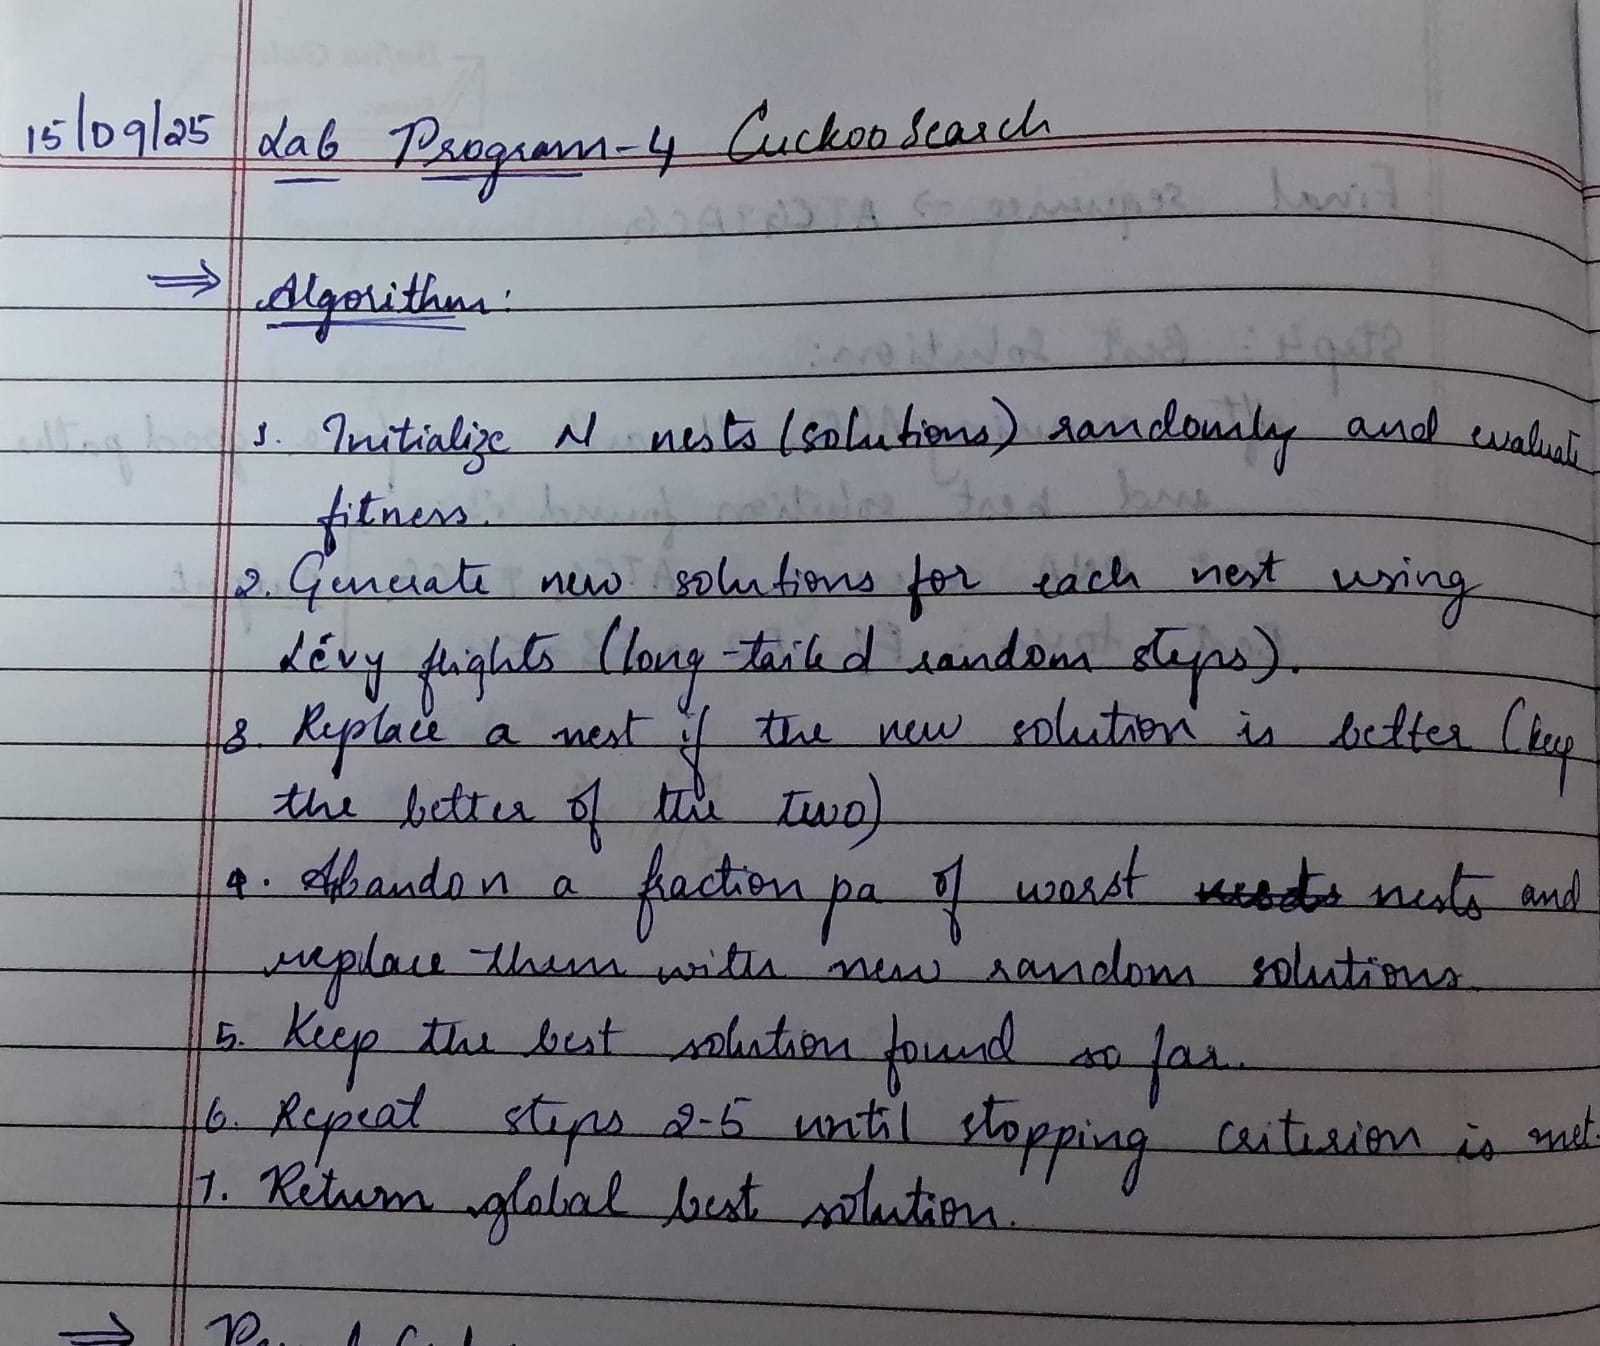 15/09/25 Lab Program-4 Cuckoo Search
⇒ Algorithm:
1. Initialize N nests (solutions) randomly and evaluate
fitness.
2. Generate new solutions for each nest using
Lévy flights (long-tailed random steps).
3. Replace a nest if the new solution is better (keep
the better of the two)
4. Abandon a fraction pa of worst nests and
replace them with new random solutions
5. Keep the best solution found so far.
6. Repeat steps 2-5 until stopping criterion is met.
7. Return global best solution.
⇒